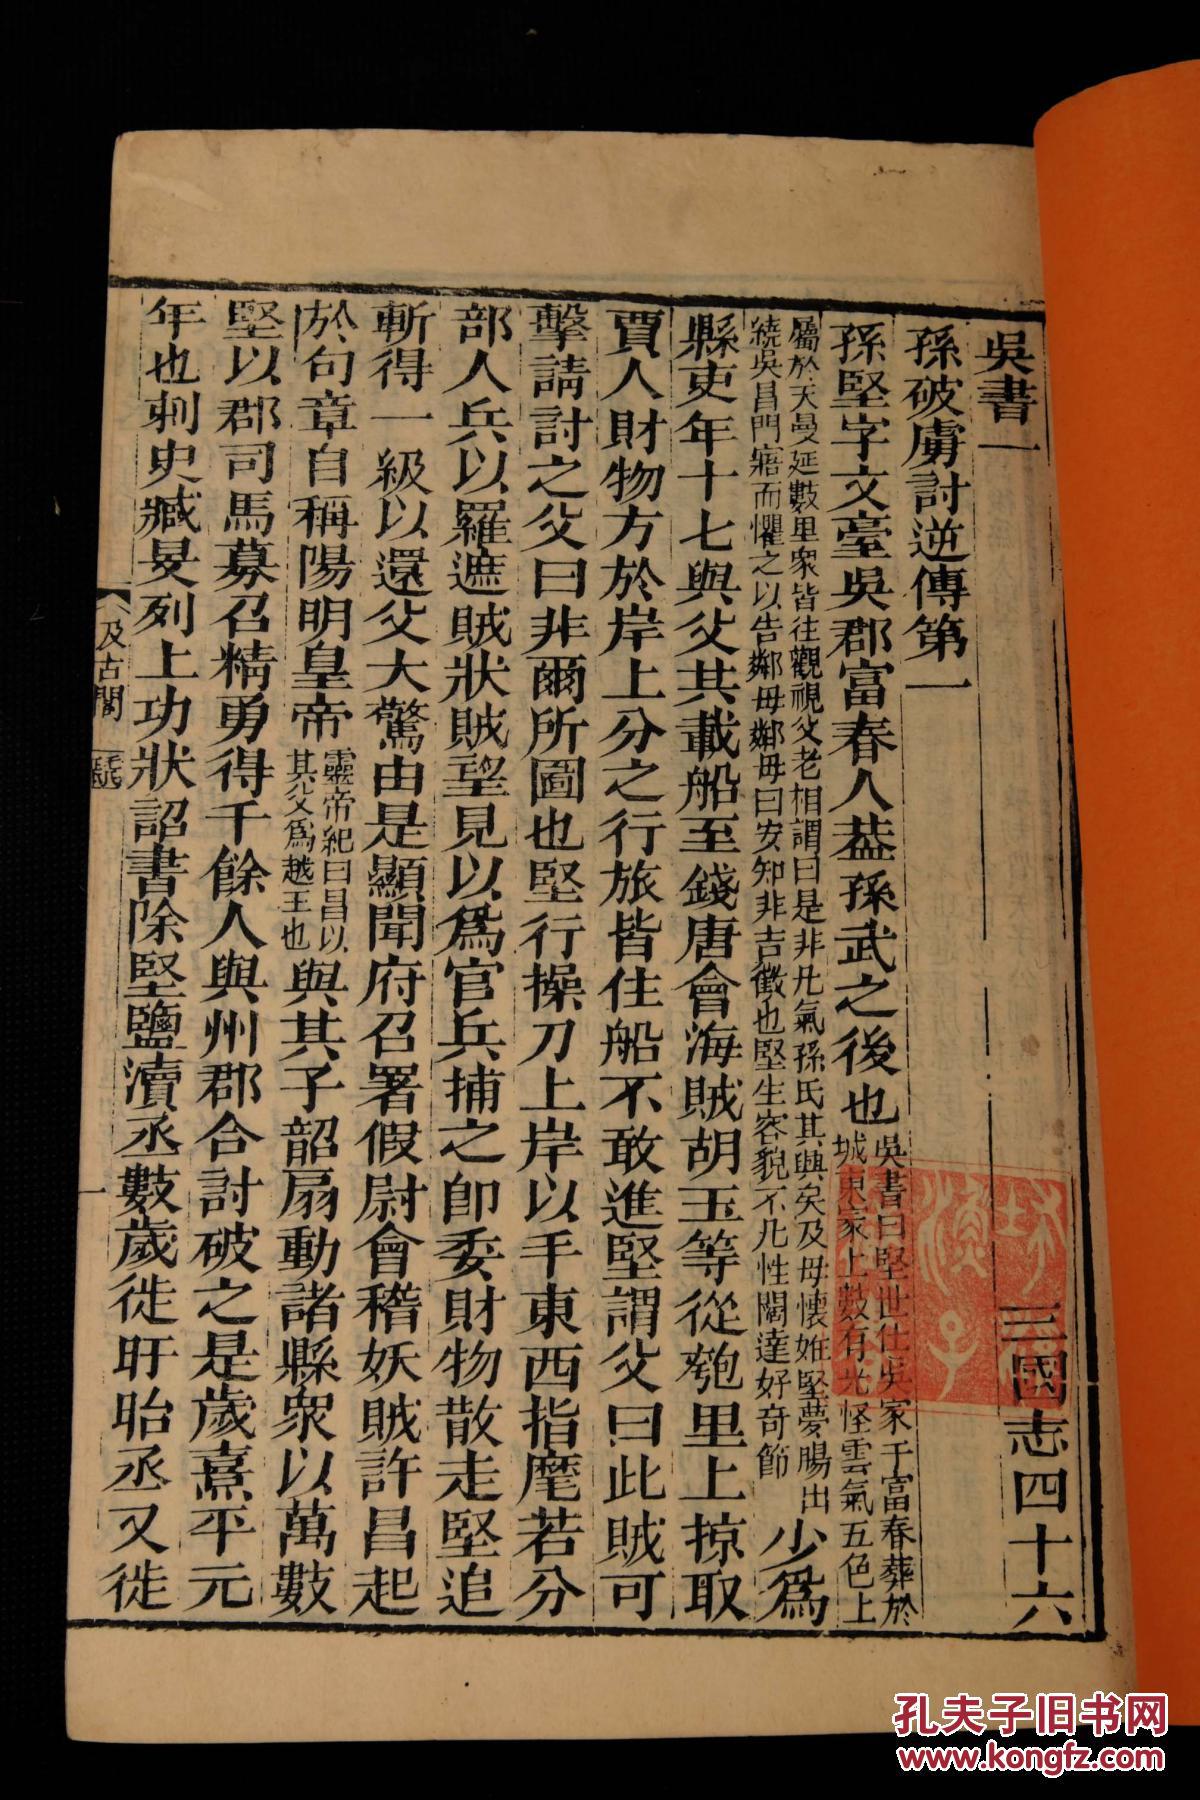 吳書一　三國志四十六
孫破虜討逆傳第一
孫堅字文臺吳郡富春人葢孫武之後也吳書曰堅世仕吳家于富春葬於
城東冢上數有光怪雲氣五色上
屬於天曼延數里衆皆往觀視父老相謂曰是非凡氣孫氏其興矣及母懷姙堅夢腸出
繞吳昌門寤而懼之以告鄰母鄰母曰安知非吉徵也堅生容貌不凡性闊達好奇節少爲
縣吏年十七與父共載船至錢唐會海賊胡玉等從匏里上掠取
賈人財物方於岸上分之行旅皆住船不敢進堅謂父曰此賊可
擊請討之父曰非爾所圖也堅行操刀上岸以手東西指麾若分
部人兵以羅遮賊狀賊望見以爲官兵捕之卽委財物散走堅追
斬得一級以還父大驚由是顯聞府召署假尉會稽妖賊許昌起
於句章自稱陽明皇帝靈帝紀曰昌以
其父爲越王也與其子韶扇動諸縣衆以萬數
堅以郡司馬募召精勇得千餘人與州郡合討破之是歲熹平元
年也刺史臧旻列上功狀詔書除堅鹽瀆丞數歲徙盱眙丞又徙
汲古閣
一
孔夫子旧书网
www.kongfz.com